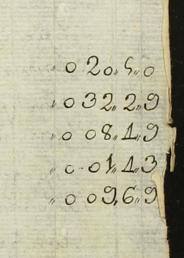 „ 0 20„ 5„ 0
„ 0 32„ 2„ 9
„ 0 08„ 1„ 9
„ 0 01„ 4„ 3
„ 0 09„ 6„ 9